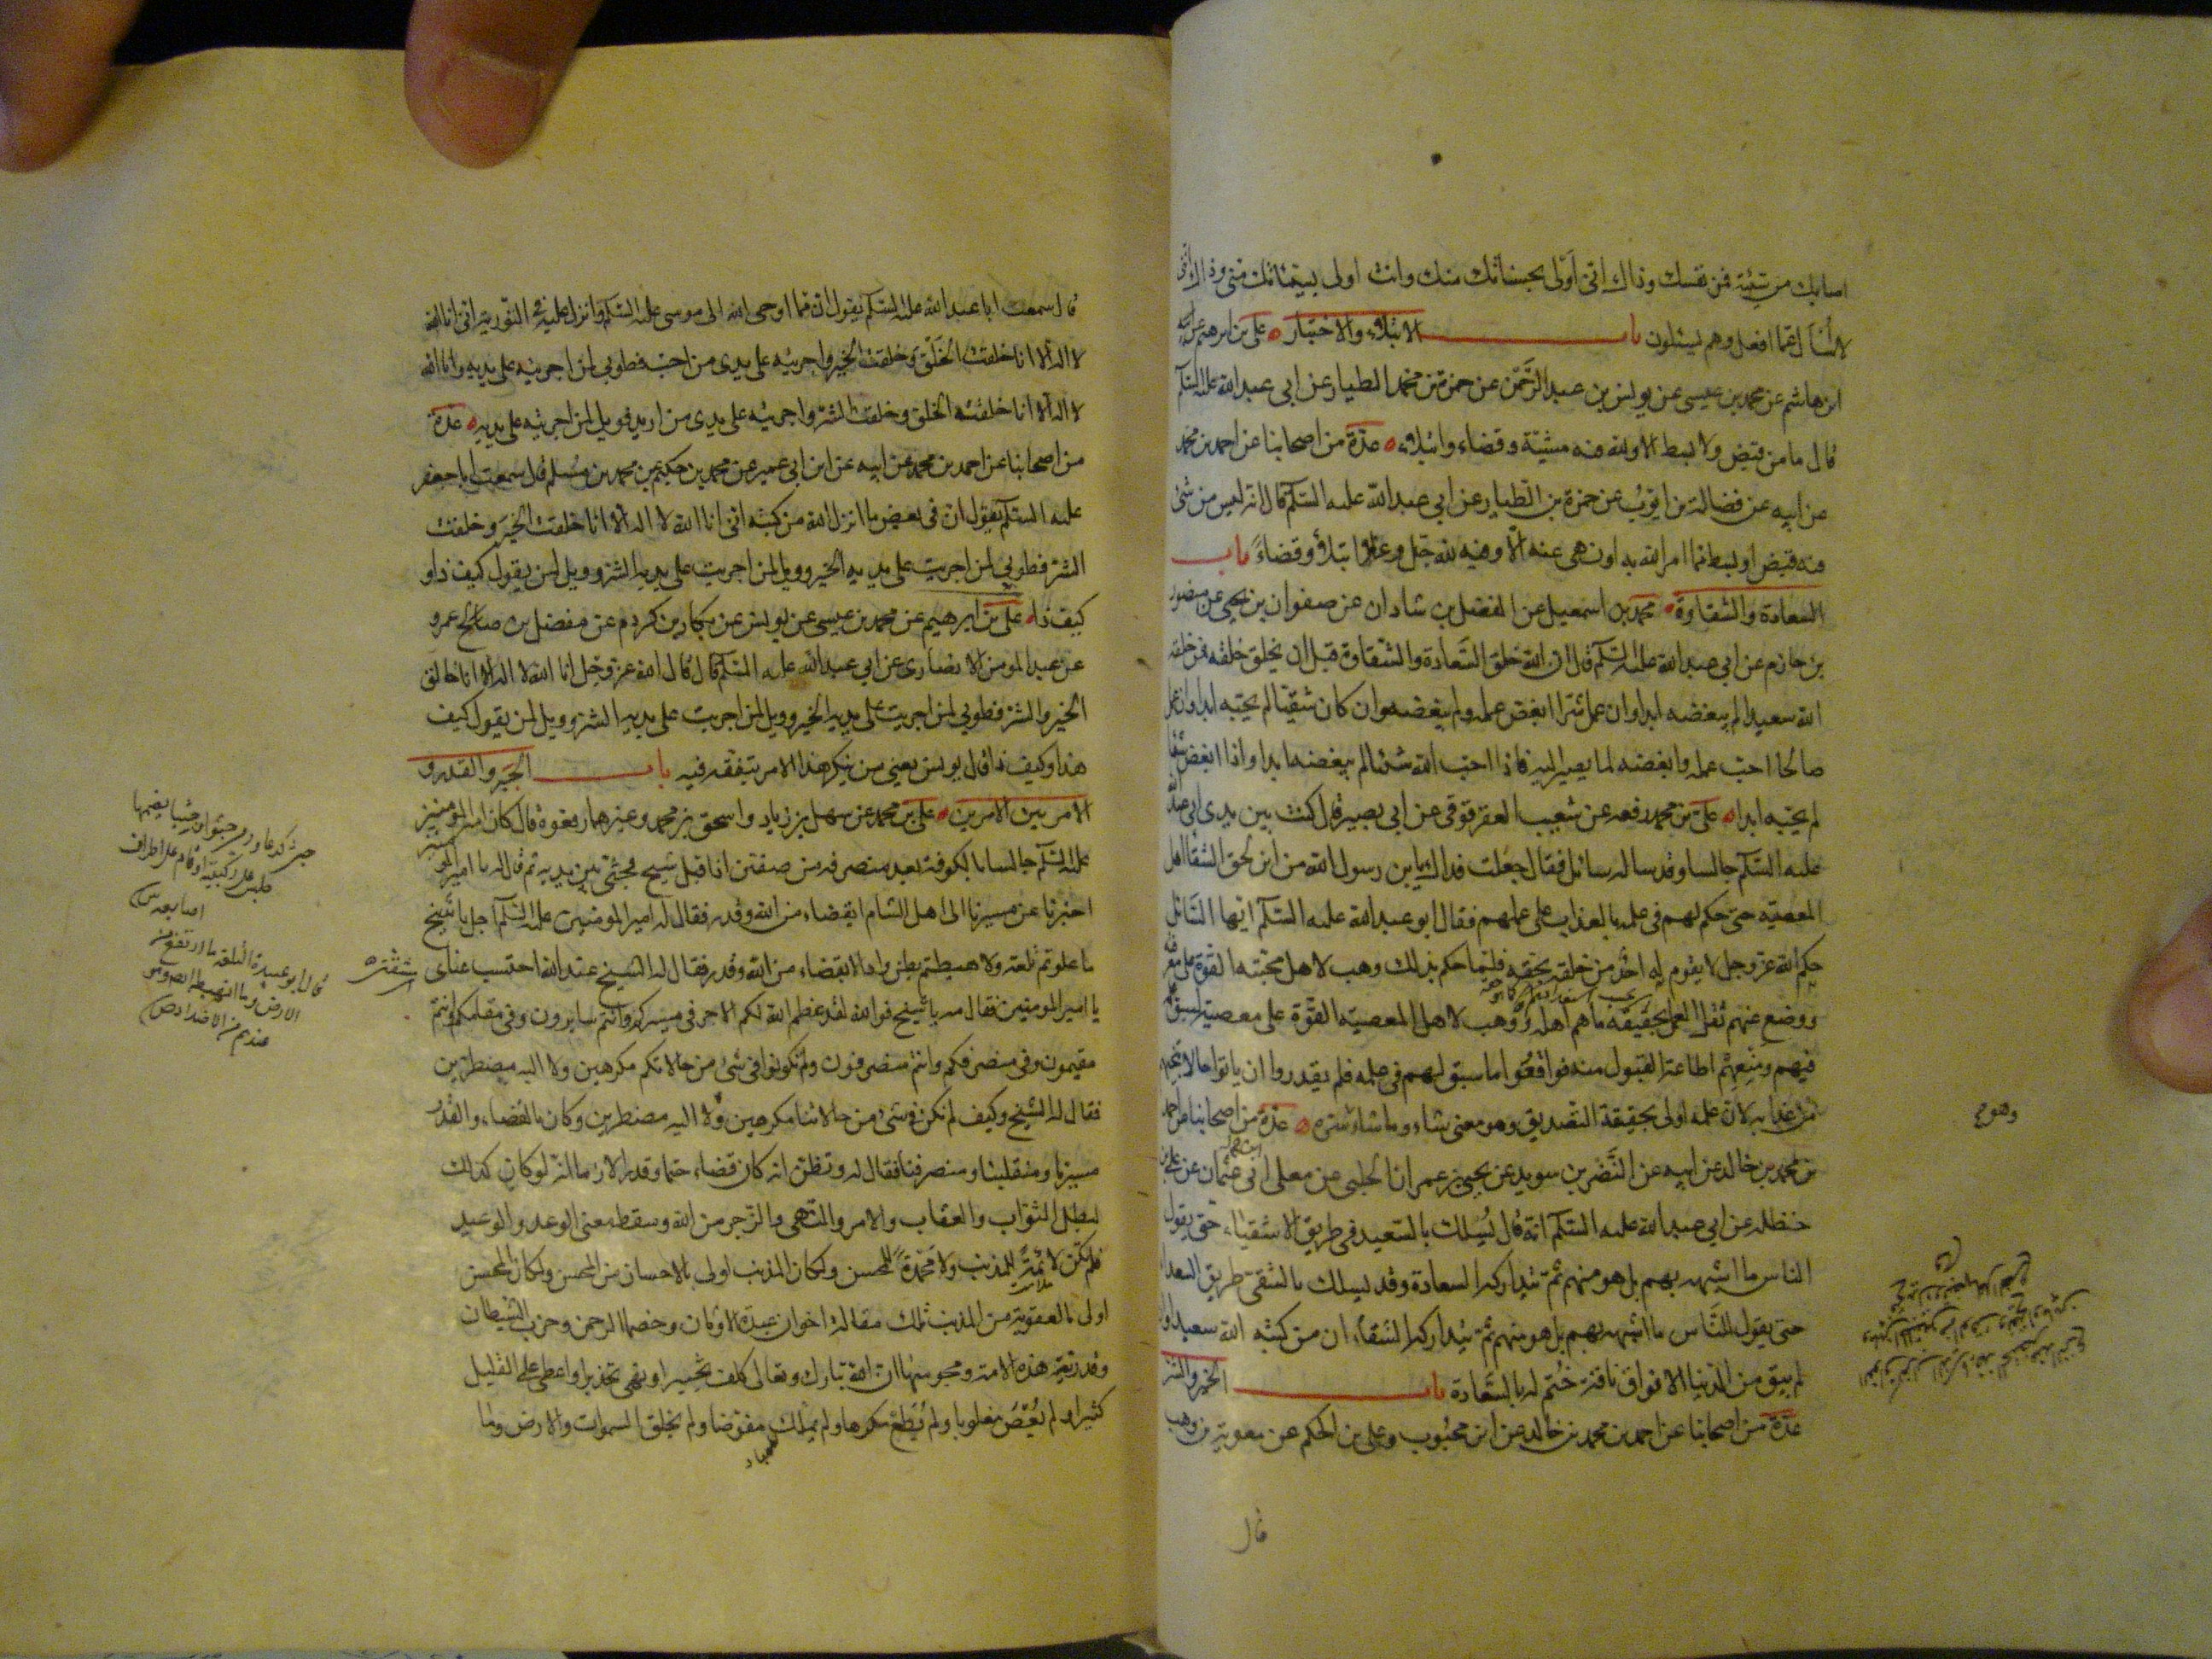 اصابك من سيئة فمن نفسك وذاك اني اولى بحسناتك منك وانت اولى بسيئاتك مني وذاك اني
لا اسأل عما افعل وهم يسئلون باب الابتلاء والاختبار علي بن ابرهيم عن
ابن هاشم عن محمد بن عيسى عن يونس بن عبد الرحمن عن حمزة بن محمد الطيار عن ابي عبد الله عليه السلم
قال ما من قبض ولا بسط الا ولله فيه مشيئة وقضاء وابتلاء عدة من اصحابنا عن احمد بن محمد
عن ابيه عن فضالة بن ايوب عن حمزة بن الطيار عن ابي عبد الله عليه السلم قال انه ليس من شئ
فيه قبض او بسط مما امر الله به او نهى عنه الا وفيه لله جل وعز ابتلاء وقضاء باب
السعادة والشقاوة محمد بن اسمعيل عن الفضل بن شاذان عن صفوان بن يحيى عن منصور
بن حازم عن ابي عبد الله عليه السلم قال ان الله خلق السعادة والشقاوة قبل ان يخلق خلقه فمن خلقه
الله سعيدا لم يبغضه ابدا وان عمل شرا ابغض عمله ولم يبغضه وان كان شقيا لم يحبه ابدا وان عمل
صالحا احب عمله وابغضه لما يصير اليه فاذا احب الله شئا لم يبغضه ابدا واذا ابغض شئا
لم يحبه ابدا علي بن محمد رفعه عن شعيب العقرقوفي عن ابي بصير قال كنت بين يدي ابي عبد الله
عليه السلم جالسا وقد ساله سائل فقال جعلت فداك يا بن رسول الله من اين لحق الشقاء اهل
المعصية حتى حكم لهم في علمه بالعذاب على عملهم فقال ابو عبد الله عليه السلم ايها السائل
حكم الله عز وجل لا يقوم له احد من خلقه بحقه فلما حكم بذلك وهب لاهل محبته القوة على معرفته
ووضع عنهم ثقل العمل بحقيقة ما هم اهله ووهب لاهل المعصية القوة على معصيتهم لسبق علمه
فيهم ومنعهم اطاعة القبول منه فواقعوا ما سبق لهم في علمه فلم يقدروا ان ياتوا حالا تنجيهم
من عذابه لان علمه اولى بحقيقة التصديق وهو معنى شاء وما شاء سره عدة من اصحابنا عن احمد
بن محمد بن خالد عن ابيه عن النضر بن سويد عن يحيى بن عمران الحلبي عن معلى ابي عثمان عن علي بن
حنظلة عن ابي عبد الله عليه السلم انه قال يسلك بالسعيد في طريق الاشقياء حتى يقول
الناس ما اشبهه بهم بل هو منهم ثم تتداركه السعادة وقد يسلك بالشقي طريق السعداء
حتى يقول الناس ما اشبهه بهم بل هو منهم ثم يتداركه الشقاء ان من كتبه الله سعيدا وان
لم يبق من الدنيا الا فواق ناقة ختم له بالسعادة باب الخير والشر
عدة من اصحابنا عن احمد بن محمد بن خالد عن ابن محبوب وعلي بن الحكم عن معوية بن وهب
قال
وهو
قال سمعت ابا عبد الله عليه السلم يقول ان مما اوحى الله الى موسى عليه السلم وانزل عليه في التورية اني انا الله
لا اله الا انا خلقت الخلق وخلقت الخير واجريته على يدي من احب فطوبى لمن اجريته على يديه وانا الله
لا اله الا انا خلقت الخلق وخلقت الشر واجريته على يدي من اريد فويل لمن اجريته على يديه عدة
من اصحابنا عن احمد بن محمد عن ابيه عن ابن ابي عمير عن محمد بن حكيم عن محمد بن مسلم قال سمعت ابا جعفر
عليه السلم يقول ان في بعض ما انزل الله من كتبه اني انا الله لا اله الا انا خلقت الخير وخلقت
الشر فطوبى لمن اجريت على يديه الخير وويل لمن اجريت على يديه الشر وويل لمن يقول كيف ذا و
كيف ذا علي بن ابرهيم عن محمد بن عيسى عن يونس عن بكار بن كردم عن مفضل بن صالح عمرو
عن عبد المومن الانصاري عن ابي عبد الله عليه السلم قال قال الله عز وجل انا الله لا اله الا انا خالق
الخير والشر فطوبى لمن اجريت على يديه الخير وويل لمن اجريت على يديه الشر وويل لمن يقول كيف
هذا وكيف ذا قال يونس يعني من ينكر هذا الامر بتفقه فيه باب الجبر والقدر و
الامر بين الامرين علي بن محمد عن سهل بن زياد واسحق بن محمد وغيرهما رفعوه قال كان امير المومنين
عليه السلم جالسا بالكوفة بعد منصرفه من صفين اذا قبل شيخ فجثى بين يديه ثم قال له يا امير المومنين
اخبرنا عن مسيرنا الى اهل الشام ابقضاء من الله وقدر فقال له امير المومنين عليه السلم اجل يا شيخ
ما علوتم تلعة ولا هبطتم بطن واد الا بقضاء من الله وقدر فقال له الشيخ عند الله احتسب عناى
يا امير المومنين فقال مه يا شيخ فوالله لقد عظم الله لكم الاجر في مسيركم وانتم سايرون وفي مقامكم وانتم
مقيمون وفي منصرفكم وانتم منصرفون ولم تكونوا في شئ من حالاتكم مكرهين ولا اليه مضطرين
فقال له الشيخ وكيف لم نكن في شئ من حالاتنا مكرهين ولا اليه مضطرين وكان بالقضاء والقدر
مسيرنا ومنقلبنا ومنصرفنا فقال له وتظن انه كان قضاء حتما وقدرا لازما انه لو كان كذلك
لبطل الثواب والعقاب والامر والنهي والزجر من الله وسقط معنى الوعد والوعيد
فلم تكن لائمة للمذنب ولا محمدة للمحسن ولكان المذنب اولى بالاحسان من المحسن ولكان المحسن
اولى بالعقوبة من المذنب تلك مقالة اخوان عبدة الاوثان وخصما الرحمن وحزب الشيطان
وقدرية هذه الامة ومجوسها ان الله تبارك وتعالى كلف تخييرا ونهى تحذيرا واعطى على القليل
كثيرا ولم يعص مغلوبا ولم يطع مكرها ولم يملك مفوضا ولم يخلق السموات والارض وما